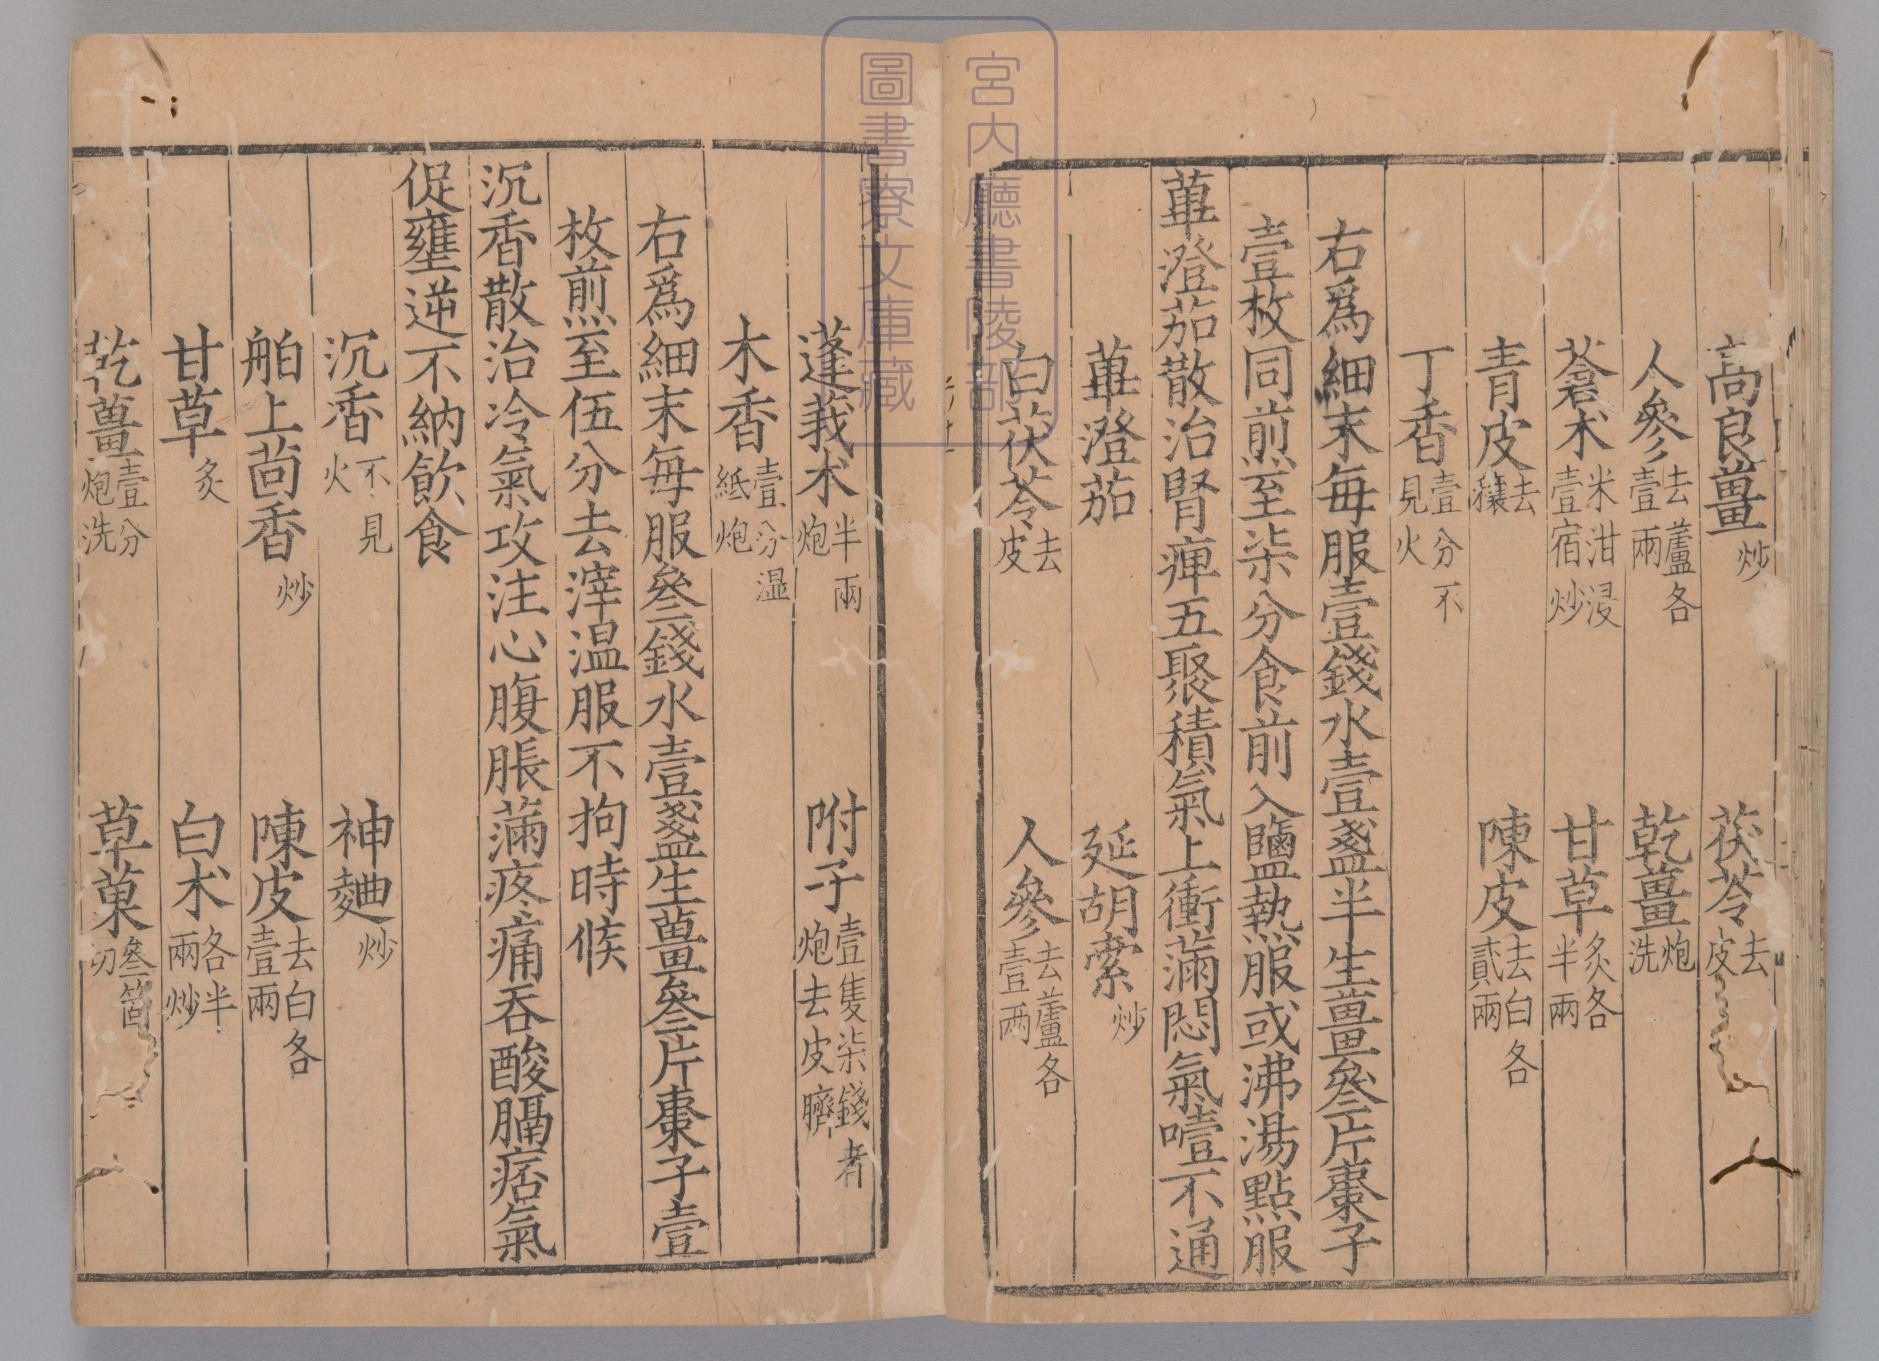 高良薑炒　茯苓去皮
人參去蘆各壹兩　乾薑炮洗
蒼朮米泔浸壹宿炒　甘草炙各半兩
青皮去穰　陳皮去白各貳兩
丁香壹分不見火
右爲細末每服壹錢水壹盞半生薑叄片棗子
壹枚同煎至柒分食前入鹽熱服或沸湯點服
蓽澄茄散治腎痺五聚積氣上衝滿悶氣噎不通
蓽澄茄　延胡索炒
白茯苓去皮　人參去蘆各壹两
蓬莪朮半兩炮　附子壹隻柒錢者炮去皮臍
木香壹分濕紙炮
右爲細末每服叄錢水壹盞生薑叄片棗子壹
枚煎至伍分去滓温服不拘時候
沉香散治冷氣攻注心腹脹滿疼痛吞酸膈痞氣
促壅逆不納飲食
沉香不見火　神麯炒
舶上茴香炒　陳皮去白各壹兩
甘草炙　白朮各半兩炒
乾薑壹分炮洗　草菓叄箇切
宮内廳書陵部
圖書寮文庫藏